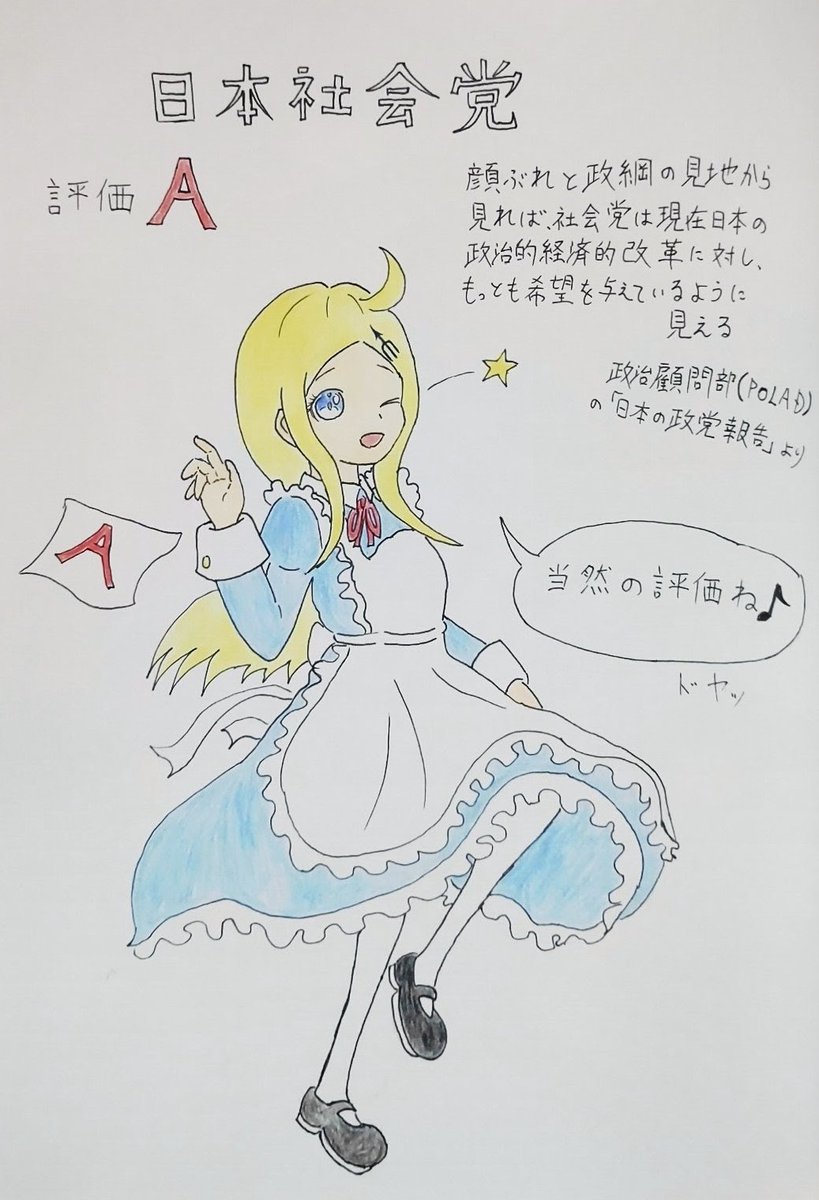 日本社会党
評価 A
顔ぶれと政綱の見地から
見れば、社会党は現在日本の
政治的経済的改革に対し、
もっとも希望を与えているように
見える
政治顧問部(POLAD)
の「日本の政党報告」より
A
当然の評価ね♪
ドヤッ